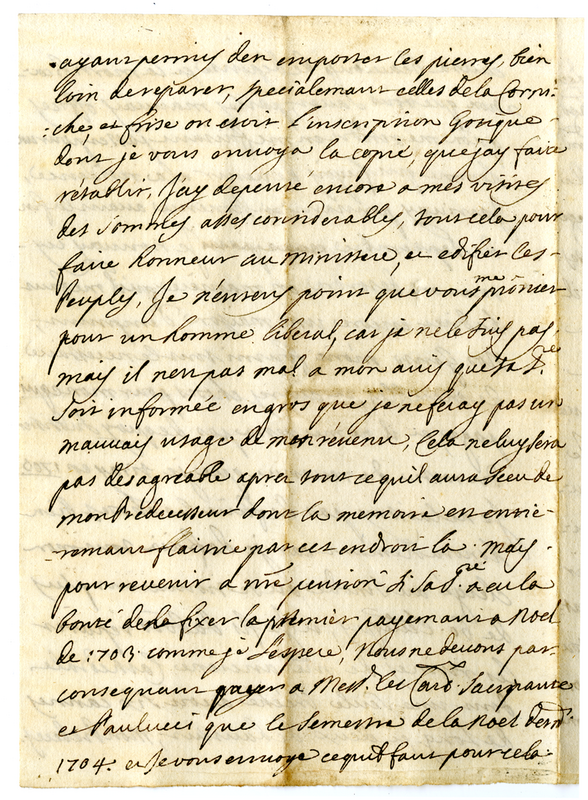 ayant permis d'en emporter les pierres, bien
loin de reparer, specialemant celles de la Corni-
che, et frise ou etoit l'inscription Gotique
dont je vous envoya la copie, que j'ay faite
retablir, J'ay depensé encore a mes visites
des sommes asses considerables, tout cela pour
faire honneur au ministere, et edifier les
Peuples, Je n'entens point que vous me prônier
pour un homme liberal, car je ne le suis pas
mais il n'en pas mal a mon avis que sa S.té
soit informée en gros que je ne feray pas un
mauvais usage de mon révenu, Cela ne luy sera
pas désagreable apres tout ce quil aura sceu de
mon Prédecesseur dont la memoire est entie-
remant flaitrie par cet endroit la. Mais
pour revenir a nre pension Si Sa S.té a eu la
bonté de la fixer la premier payemant a Noel
de 1703. comme je l'espere, Nous ne devons par
consequant payer a Mess.rs les Card.x Sacripante
et Paulucci que le Semestre de la Noel dern.
1704. et Je vous envoye ce quil faut pour cela.